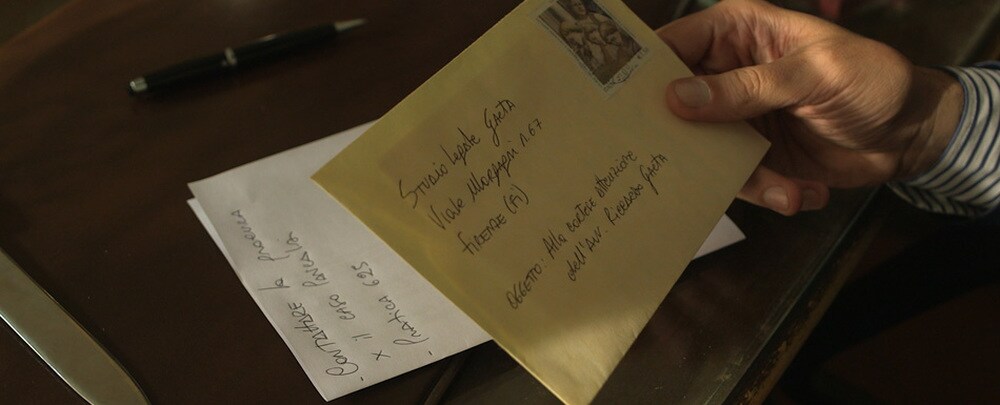 Studio legale GAETA
Viale Morgagni n. 67
FIRENZE (FI)
OGGETTO: Alla cortese attenzione
dell'Avv. Riccardo Gaeta
- CONTATTARE la Procura
x il caso
- Pratica 625